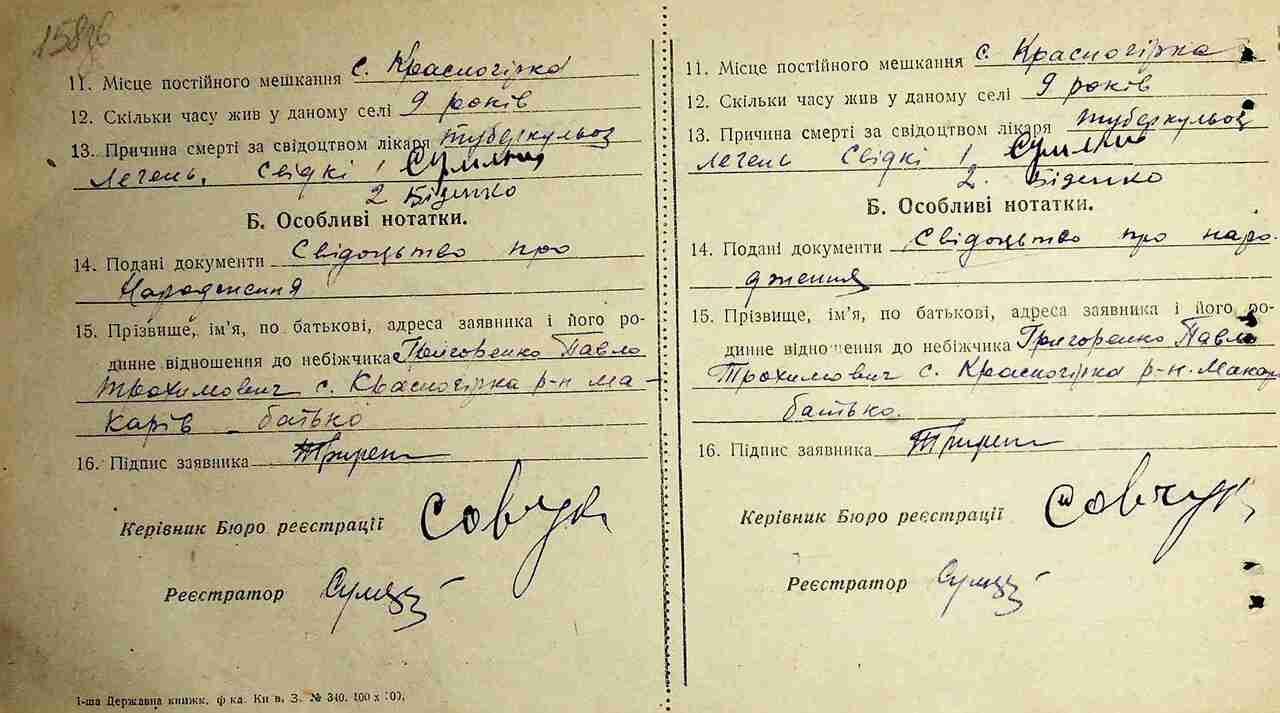 15826
11. Місце постійного мешкання с. Красногірка
12. Скільки часу жив у даному селі 9 років
13. Причина смерті за свідоцтвом лікаря туберкульоз
легень. Свідкі 1
2 Біденко
Б. Особливі нотатки.
14. Подані документи Свідоцьтво про
Народження
15. Прізвище, ім'я, по батькові, адреса заявника і його ро-
динне відношення до небіжчика Григоренко Павло
Трохимович с. Красногірка р-н Ма-
карів батько
16. Підпис заявника
Керівник Бюро реєстрації Совчук
Реєстратор
1-ша Державна книжк. ф-ка. Київ. З. № 340. 400 х 100.
11. Місце постійного мешкання с. Красногірка
12. Скільки часу жив у даному селі 9 років
13. Причина смерті за свідоцтвом лікаря туберкульоз
легень Свідкі 1.
2. Біденко
Б. Особливі нотатки.
14. Подані документи Свідоцьтво про наро-
дження
15. Прізвище, ім'я, по батькові, адреса заявника і його ро-
динне відношення до небіжчика Григоренко Павло
Трохимович с. Красногірка р-н. Макар
батько.
16. Підпис заявника
Керівник Бюро реєстрації Совчук
Реєстратор